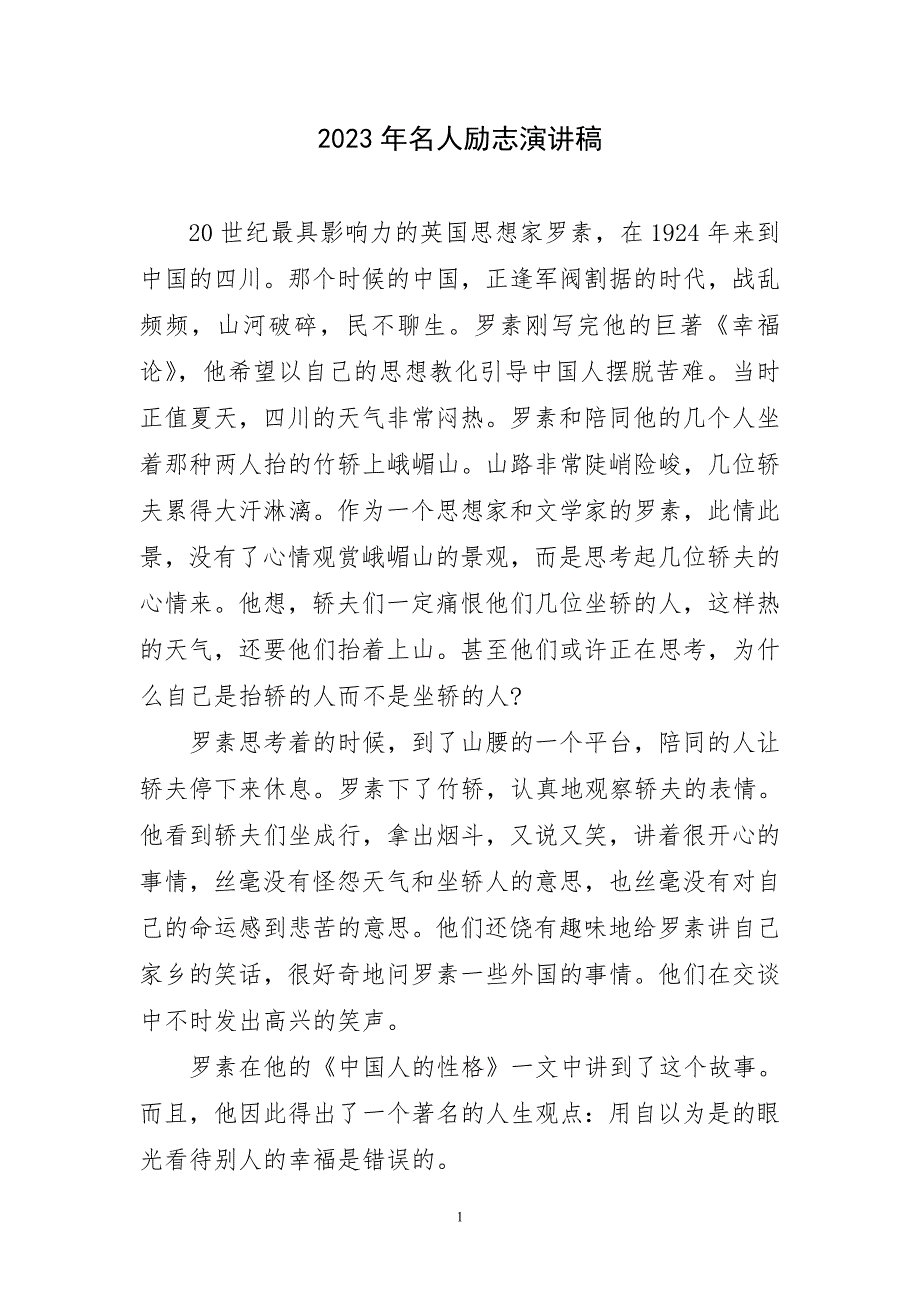 2023年名人励志演讲稿
20世纪最具影响力的英国思想家罗素，在1924年来到
中国的四川。那个时候的中国，正逢军阀割据的时代，战乱
频频，山河破碎，民不聊生。罗素刚写完他的巨著《幸福
论》，他希望以自己的思想教化引导中国人摆脱苦难。当时
正值夏天，四川的天气非常闷热。罗素和陪同他的几个人坐
着那种两人抬的竹轿上峨嵋山。山路非常陡峭险峻，几位轿
夫累得大汗淋漓。作为一个思想家和文学家的罗素，此情此
景，没有了心情观赏峨嵋山的景观，而是思考起几位轿夫的
心情来。他想，轿夫们一定痛恨他们几位坐轿的人，这样热
的天气，还要他们抬着上山。甚至他们或许正在思考，为什
么自己是抬轿的人而不是坐轿的人?
罗素思考着的时候，到了山腰的一个平台，陪同的人让
轿夫停下来休息。罗素下了竹轿，认真地观察轿夫的表情。
他看到轿夫们坐成行，拿出烟斗，又说又笑，讲着很开心的
事情，丝毫没有怪怨天气和坐轿人的意思，也丝毫没有对自
己的命运感到悲苦的意思。他们还饶有趣味地给罗素讲自己
家乡的笑话，很好奇地问罗素一些外国的事情。他们在交谈
中不时发出高兴的笑声。
罗素在他的《中国人的性格》一文中讲到了这个故事。
而且，他因此得出了一个著名的人生观点：用自以为是的眼
光看待别人的幸福是错误的。
1